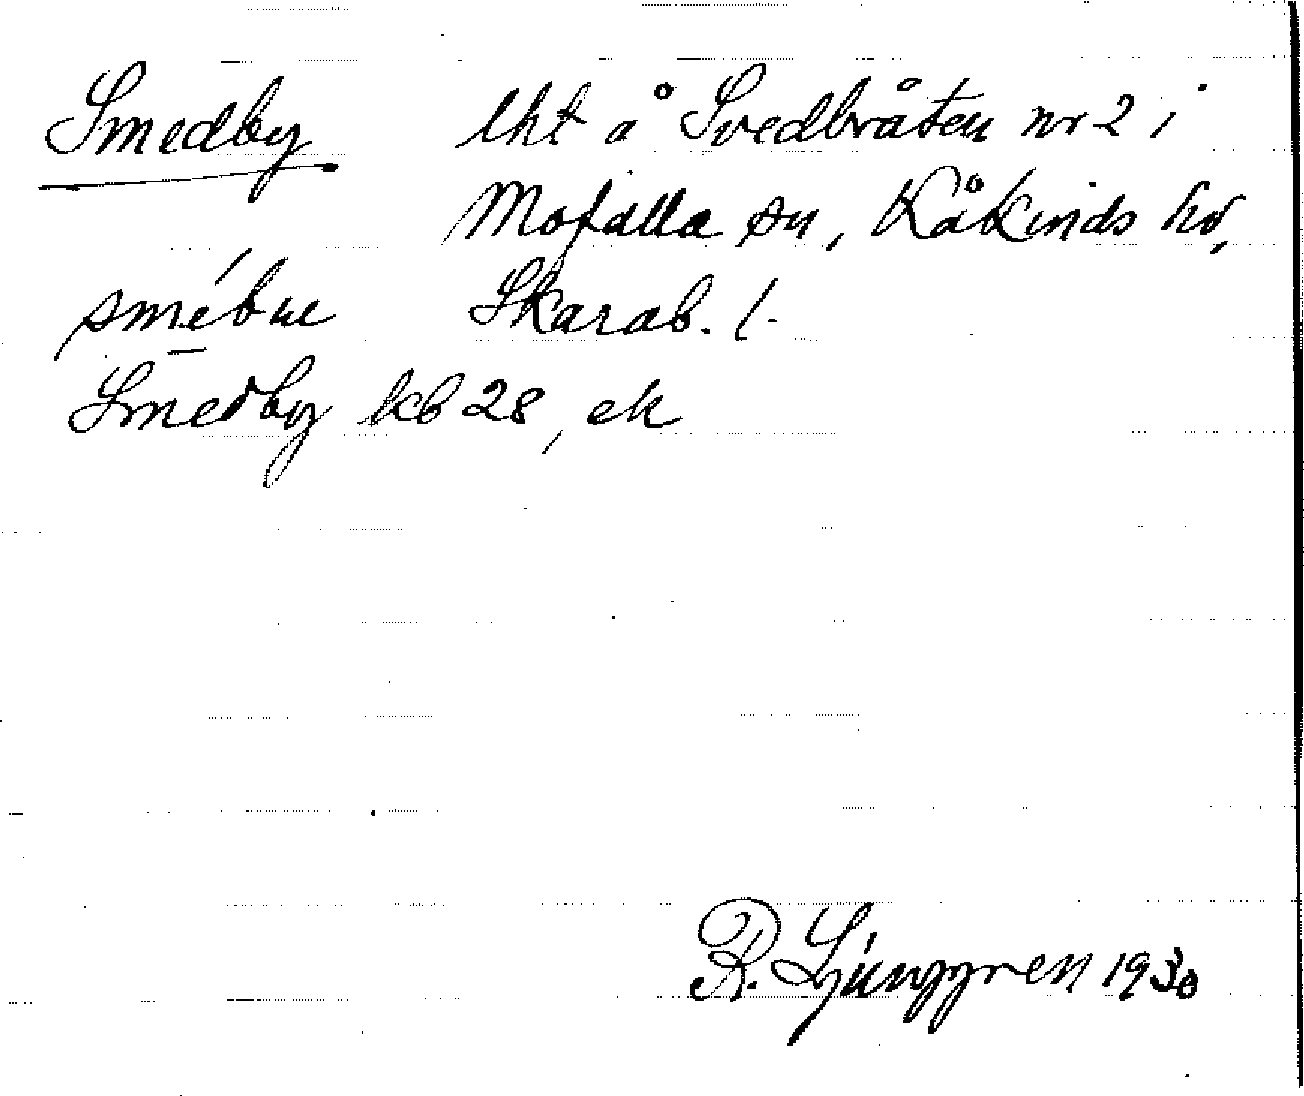 Smedby lht å Svedbråten nr 2 i
Mofalla sn, Kåkinds hd,
smébue Skarab. l.
Smedby kb 28, ek
R. Ljunggren 1930